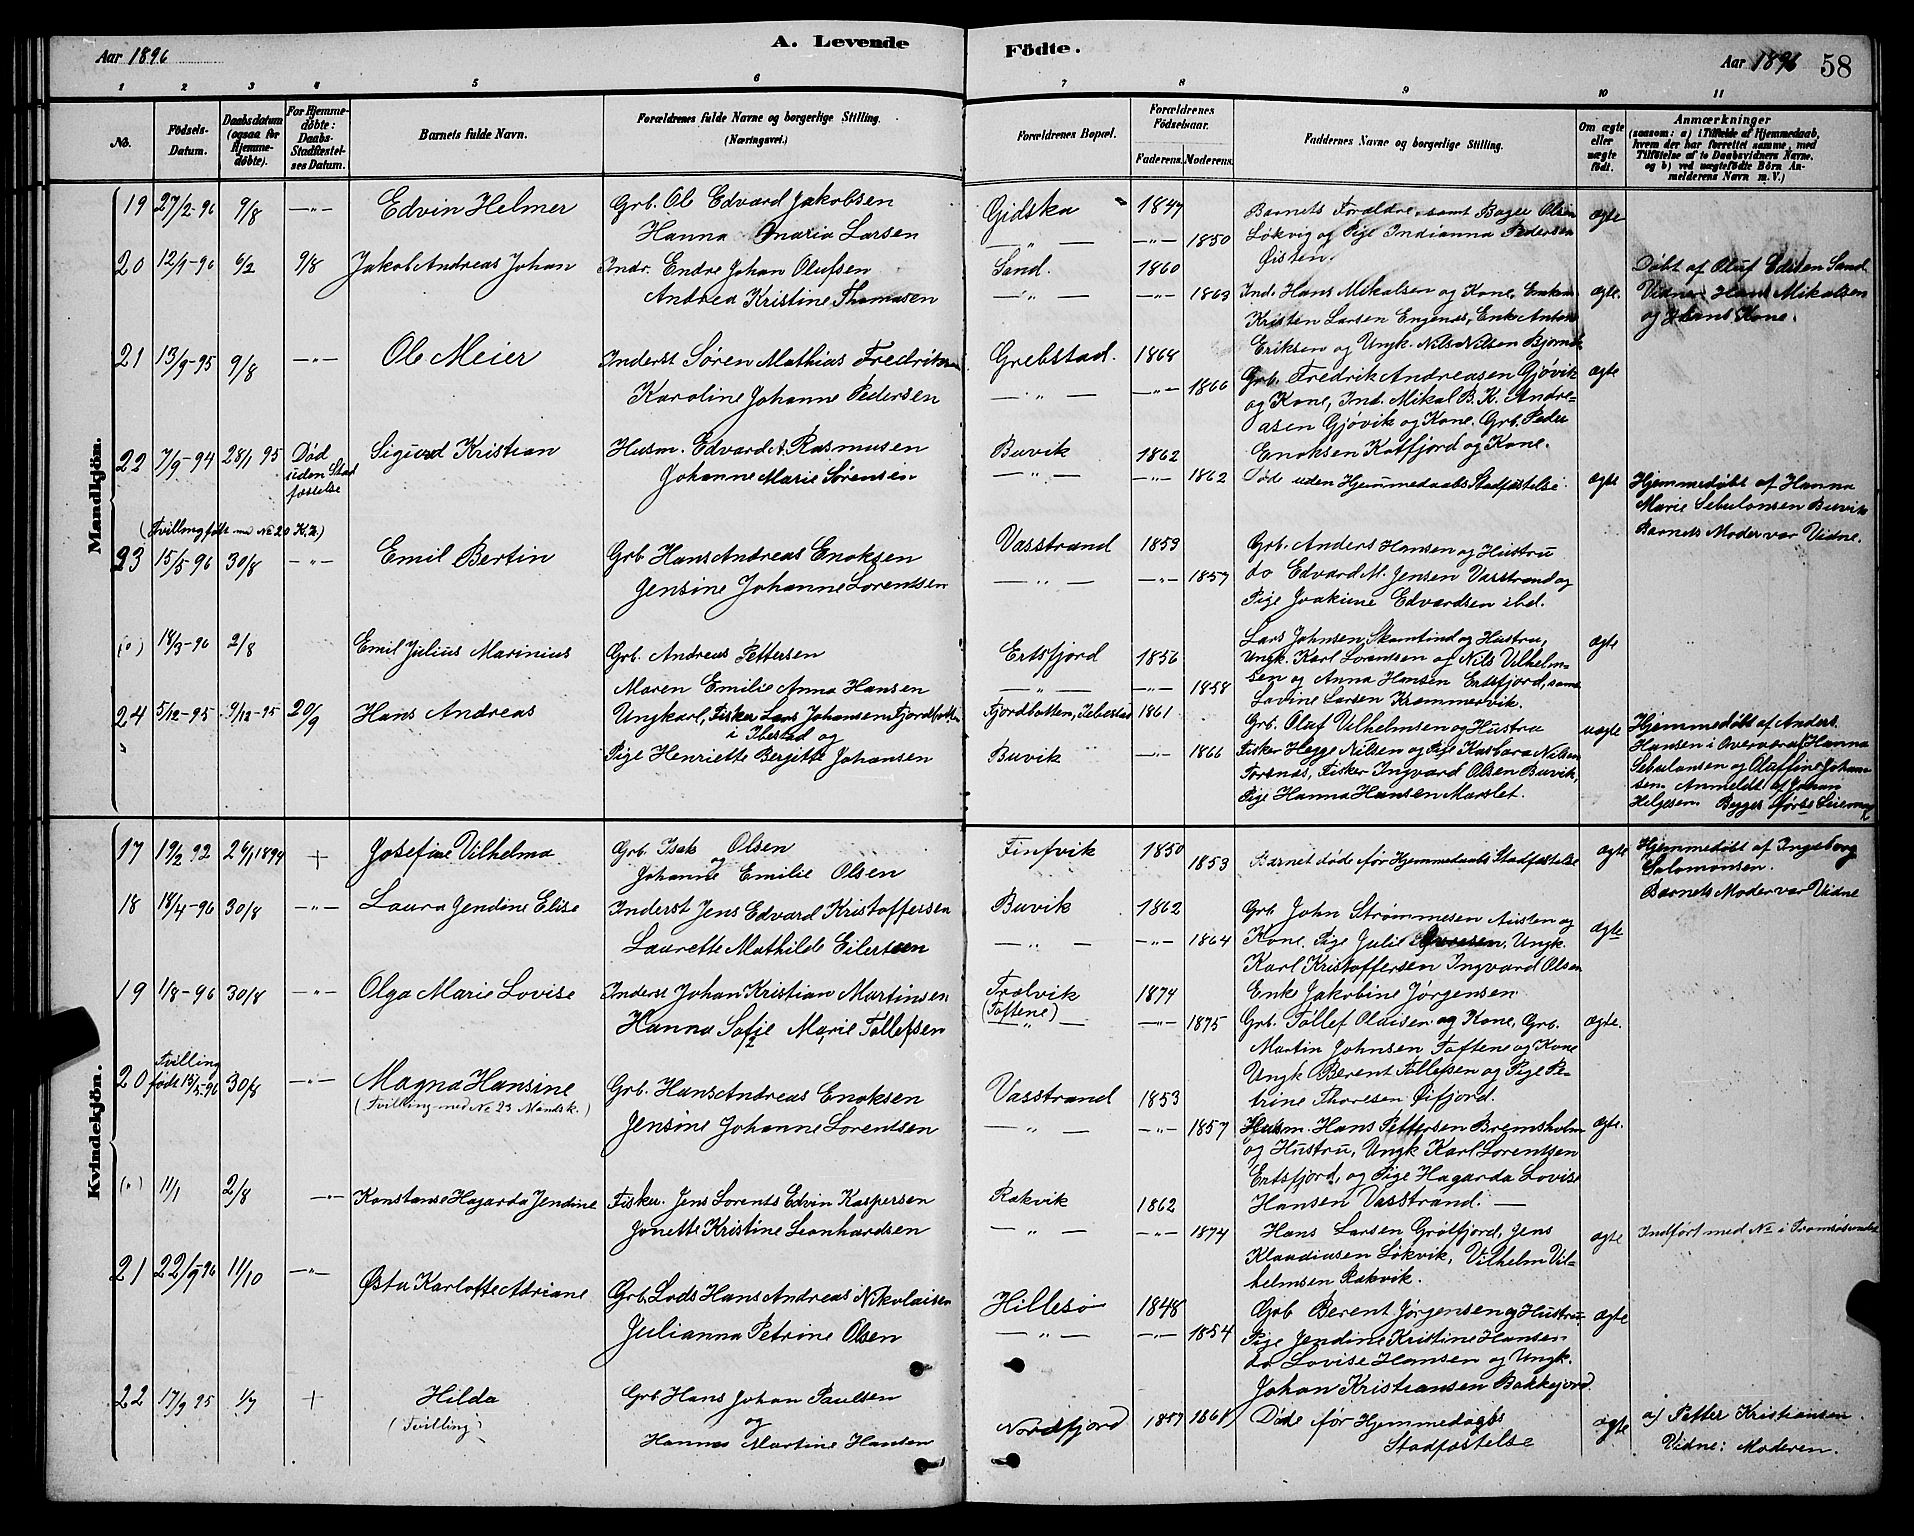 Aar 1896
A. Levende
Födte.
Aar 1896
58
1 2 3 4 5 6 7 8 9 10 11
No.
Födsels-Datum.
Daabsdatum (ogsaa for Hjemmedöbte).
For Hjemmedöbte: Daabs-Stadfæstelses Datum.
Barnets fulde Navn.
Forældrenes fulde Navne og borgerlige Stilling. (Næringsvei.)
Forældrenes Bopæl.
Forældrenes Födselsaar.
Faderens. Moderens.
Faddernes Navne og borgerlige Stilling.
Om ægte eller uægte födt.
Anmærkninger
(saasom: a) i Tilfælde af Hjemmedaab, hvem der har forrettet samme, med Tilföielse af to Daabsvidners Navne, og b) ved uægtefödte Börn Anmelderens Navn m. V.)
Mandkjön.
19 27/2-96 9/8 —"— Edvin Helmer Grb. Ole Edvard Jakobsen Gidska 1847 Barnets Forældre samt Olsen ægte
Hanna Maria Larsen —"— —"— 1850 Løkvig og Pige Indianna Pedersen
Øisten.
20 12/1-96 6/2 9/8 Jakob Andreas Johan Indr. Endre Johan Olufsen Sand. 1860 Døbt af Oluf Sand.
Andrea Kristine Thomasen —"— —"— 1863 Ind. Hans Mikalsen og Kone, ægte. Vidner Hans Mikalsen
Kristen Larsen Engenæs, Enke og Hans Kone.
Eriksen og Ungk. Nils Nilsen
21 13/9-95 9/8 —"— Ole Meier Inderst Søren Mathias Grebstad. 1868
Karoline Johanne Pedersen —"— —"— 1866 Grb. Fredrik Andreasen Gjövik ægte
og Kone, Ind. Mikal B. K. Andre-
asen Gjövik og Kone, Grb. Peder
Enoksen Katfjord og Kone.
22 7/9-94 28/1 95 Død uden Stadfæstelse Sigurd Kristian Husm. Edvard A. Rasmusen Buvik 1862
Johanne Marie Sørensen —"— —"— 1862 Døde uden Hjemmedaabs Stadfæstelse. ægte Hjemmedøbt af Hanna
Marie Sebulonsen Buvik
Barnets Moder var Vidne.
(Tvilling født med No 20 K.k.)
23 15/5 96 30/8 —"— Emil Bertin Grb. Hans Andreas Enoksen Vasstrand 1853 Grb. Anders Hansen og Hustru
Jensine Johanne Lorentsen —"— —"— 1857 do Edvard M. Jensen Vasstrand og
Pige Joakime Edvardsen ibd.
(o) 18/3-96 2/8 Emil Julius Marinius Grb. Andreas Pettersen Ertsfjord 1856 Lars Johnsen Skamtind og Hustru, ægte
Maren Emilie Anna Hansen —"— —"— 1858 Ungk. Karl Lorentsen og Nils Vilhelm-
sen og Anna Hansen Ertsfjord, samt
Lavine Larsen Krammervik.
24 5/12-95 9/12-95 20/9 Hans Andreas Ungkarl, Fisker Lars Johansen Fjordbotten Fjordbotten, Ibestad 1861 Grb. Oluf Vilhelmsen og Hustru uægte Hjemmedøbt af Anders
i Ibestad og
Pige Henriette Bergitte Johansen Buvik —"— 1866 Fisker Hegge Nilsen og Pige Nilsen Hansen i Overvær af Hanna
Torsnæs, Fisker Ingvard Olsen Buvik, Sebulonsen og Oluffine Johan-
Pige Hanna Hansen Marslet. sen. Anmeldt af Johan
Helgesen. Begges første Leiermaal
Kvindekjön.
17 19/2 92 26/1 1894 + Josefine Vilhelma Grb. Isak Olsen Finfvik 1850 ægte Hjemmedøbt af Ingeborg
og
Johanne Emilie Olsen 1853 Barnet døde før Hjemmedaabs Stadfæstelse Salomonsen.
Barnets Moder var Vidne
18 18/4-96 30/8 —"— Laura Jendine Elise Inderst Jens Edvard Kristoffersen Buvik 1862 Grb. John Strømmesen Austen og ægte
Laurette Mathilde Eilertsen —"— —"— 1864 Kone, Pige Julie Ungk.
Karl Kristoffersen Ingvard Olsen
19 1/8-96 30/8 —"— Olga Marie Lovise Inderst Johan Kristian Martinsen Trælvik 1874 Enke Jakobine Jørgensen
(Toftene)
Hanna Sofie Marie Tollefsen —"— —"— 1875 Grb. Tollef Olaisen og Kone, Grb. ægte.
Martin Johnsen Toftene og Kone
Ungk Berent Tollefsen og Pige Pe-
trine Thoresen Øifjord.
20 Tvilling født 15/5-96 30/8 —"— Magna Hansine Grb. Hans Andreas Enoksen Vasstrand 1853
(Tvilling med No 23 Mandk.)
Jensine Johanne Lorentsen —"— —"— 1857 Husm. Hans Pettersen Bremsholm ægte.
og Hustru, Ungk Karl Lorentsen
Ertsfjord, og Pige Hagarda Lovise
Hansen Vasstrand. —
(o) 11/1 2/8 —"— Konstanse Hagarda Jendine Fisker. Jens Lorents Edvin Kaspersen Rakvik 1862
Jonette Kristine Leonhardsen —"— 1874 Hans Larsen Grøtfjord, Jens ægte Indført med No i Tromsø
Klaudiusen Løkvik, Vilhelm Vil-
helmsen Rakvik.
21 22/9-96 11/10 —"— Østa Karlotte Adriane Grb. Lods Hans Andreas Nikolaisen Hillesø 1848 Grb Berent Jørgensen og Hustru ægte
Julianna Petrine Olsen —"— —"— 1854 Pige Jendine Kristine Hansen
do Lovise Hansen og Ungk.
Johan Kristiansen Bakkejord
22 17/9 95 1/7 + Hilda Grb Hans Johan Paulsen Nordfjord 1857 1861 Døde før Hjemmedaabs ægte a) Petter Kristiansen
(Tvilling) og Stadfæstelse Vidne: Moderen.
Hanna Martine Hansen